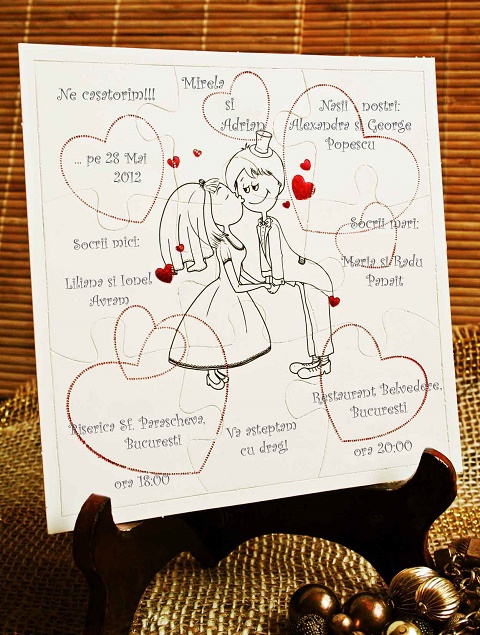 Ne casatorim!!!
Mirela
si
Adrian
Nasii nostri:
Alexandra si George
Popescu
... pe 28 Mai
2012
Socrii mici:
Liliana si Ionel
Avram
Socrii mari:
Maria si Radu
Panait
Biserica Sf. Parascheva,
Bucuresti
ora 18:00
Va asteptam
cu drag!
Restaurant Belvedere,
Bucuresti
ora 20:00